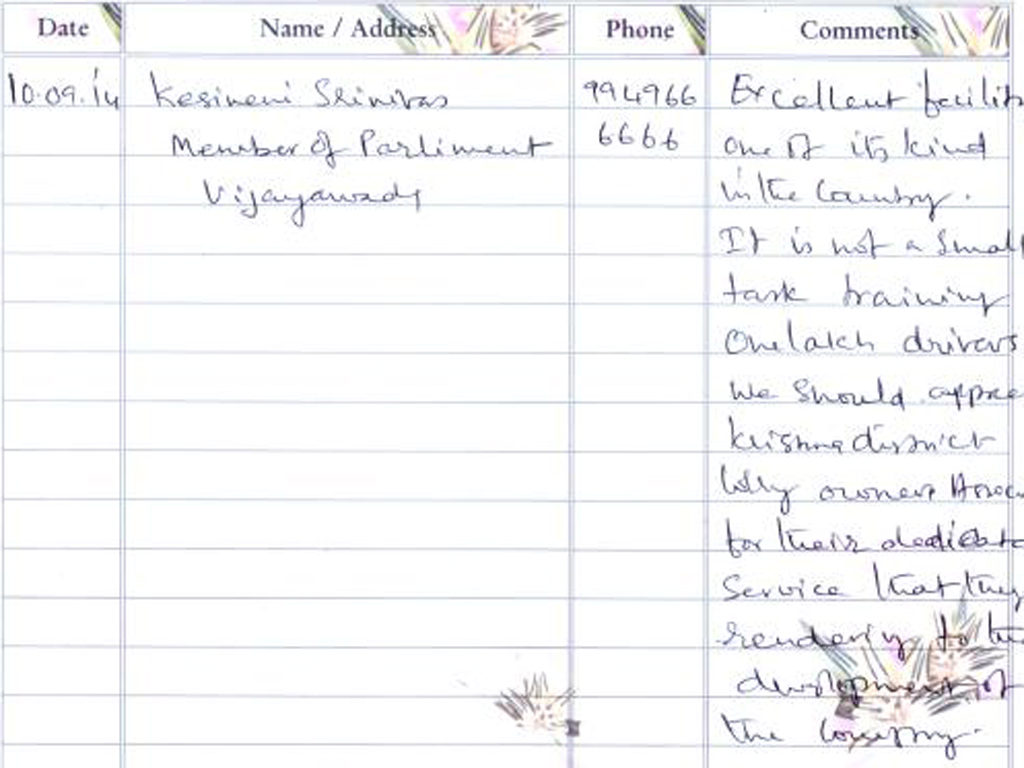 Date Name / Address Phone Comments
10.09.14 Kesineni Srinivas 994966 Excellent facilit
Member of Parliment 6666 one of its kind
Vijayawada in the Country.
It is not a Small
task training
One lakh drivers
We Should appre
Krishna district
lorry owners Assoc
for their dedicate
Service that they
rendering to the
development of
the Country.